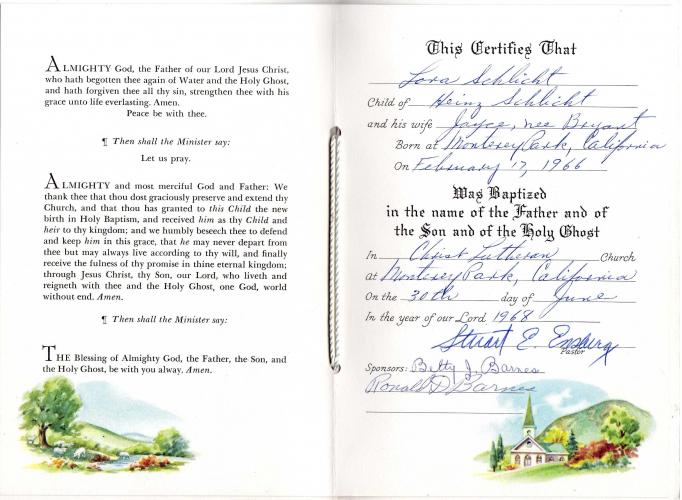 ALMIGHTY God, the Father of our Lord Jesus Christ,
who hath begotten thee again of Water and the Holy Ghost,
and hath forgiven thee all thy sin, strengthen thee with his
grace unto life everlasting. Amen.
Peace be with thee.
¶ Then shall the Minister say:
Let us pray.
ALMIGHTY and most merciful God and Father: We
thank thee that thou dost graciously preserve and extend thy
Church, and that thou has granted to this Child the new
birth in Holy Baptism, and received him as thy Child and
heir to thy kingdom; and we humbly beseech thee to defend
and keep him in this grace, that he may never depart from
thee but may always live according to thy will, and finally
receive the fulness of thy promise in thine eternal kingdom;
through Jesus Christ, thy Son, our Lord, who liveth and
reigneth with thee and the Holy Ghost, one God, world
without end. Amen.
¶ Then shall the Minister say:
THE Blessing of Almighty God, the Father, the Son, and
the Holy Ghost, be with you alway. Amen.
This Certifies That
Lora Schlicht
Child of Heinz Schlicht
and his wife Joyce, nee Bryant
Born at Monterey Park, California
On February 17, 1966
Was Baptized
in the name of the Father and of
the Son and of the Holy Ghost
In Christ Lutheran Church
at Monterey Park, California
On the 30th day of June
In the year of our Lord 1968
Stuart E.
Pastor
Sponsors: Betty J. Barnes
Ronald D Barnes